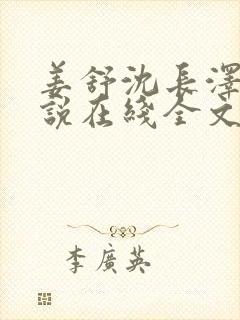 姜舒沈長澤
說在綫全文
李廣英